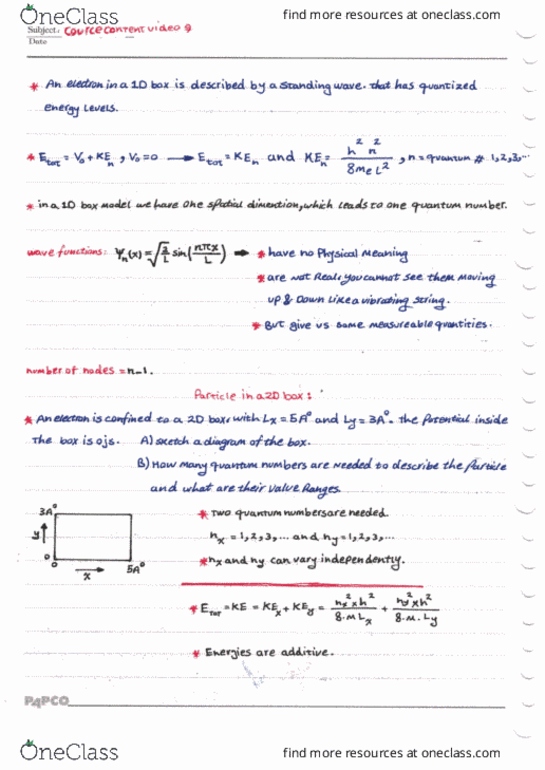 OneClass
find more resources at oneclass.com
Subject: Cource content video 9
Date
* An electron in a 1D box is described by a standing wave. that has quantized
energy levels.
* E_tot = V_0 + KE_n , V_0=0 → E_tot = KE_n and KE_n = h² n² / 8 m_e L² , n = quantum # 1,2,3,...
* in a 1D box model we have one spatial dimention, which leads to one quantum number.
wave functions: Ψ_n(x) = √(2/L) sin(nπx/L) → * have no Physical Meaning
* are not Real; you cannot see them moving
up & Down Like a vibrating string.
* But give us some measureable quantities.
number of nodes = n-1.
Particle in a 2D box:
* An electron is confined to a 2D box, with Lx = 5A° and Ly = 3A°. the Potential inside
The box is 0 Js. A) sketch a diagram of the box.
B) How many quantum numbers are needed to describe the Particle
and what are their value Ranges.
3A°
y
0
0
x
5A°
* Two quantum numbers are needed.
n_x = 1,2,3,... and n_y = 1,2,3,...
* n_x and n_y can vary independently.
* E_tot = KE = KE_x + KE_y = n_x² × h² / 8·M L_x + n_y² × h² / 8·M·L_y
* Energies are additive.
PAPCO
OneClass
find more resources at oneclass.com